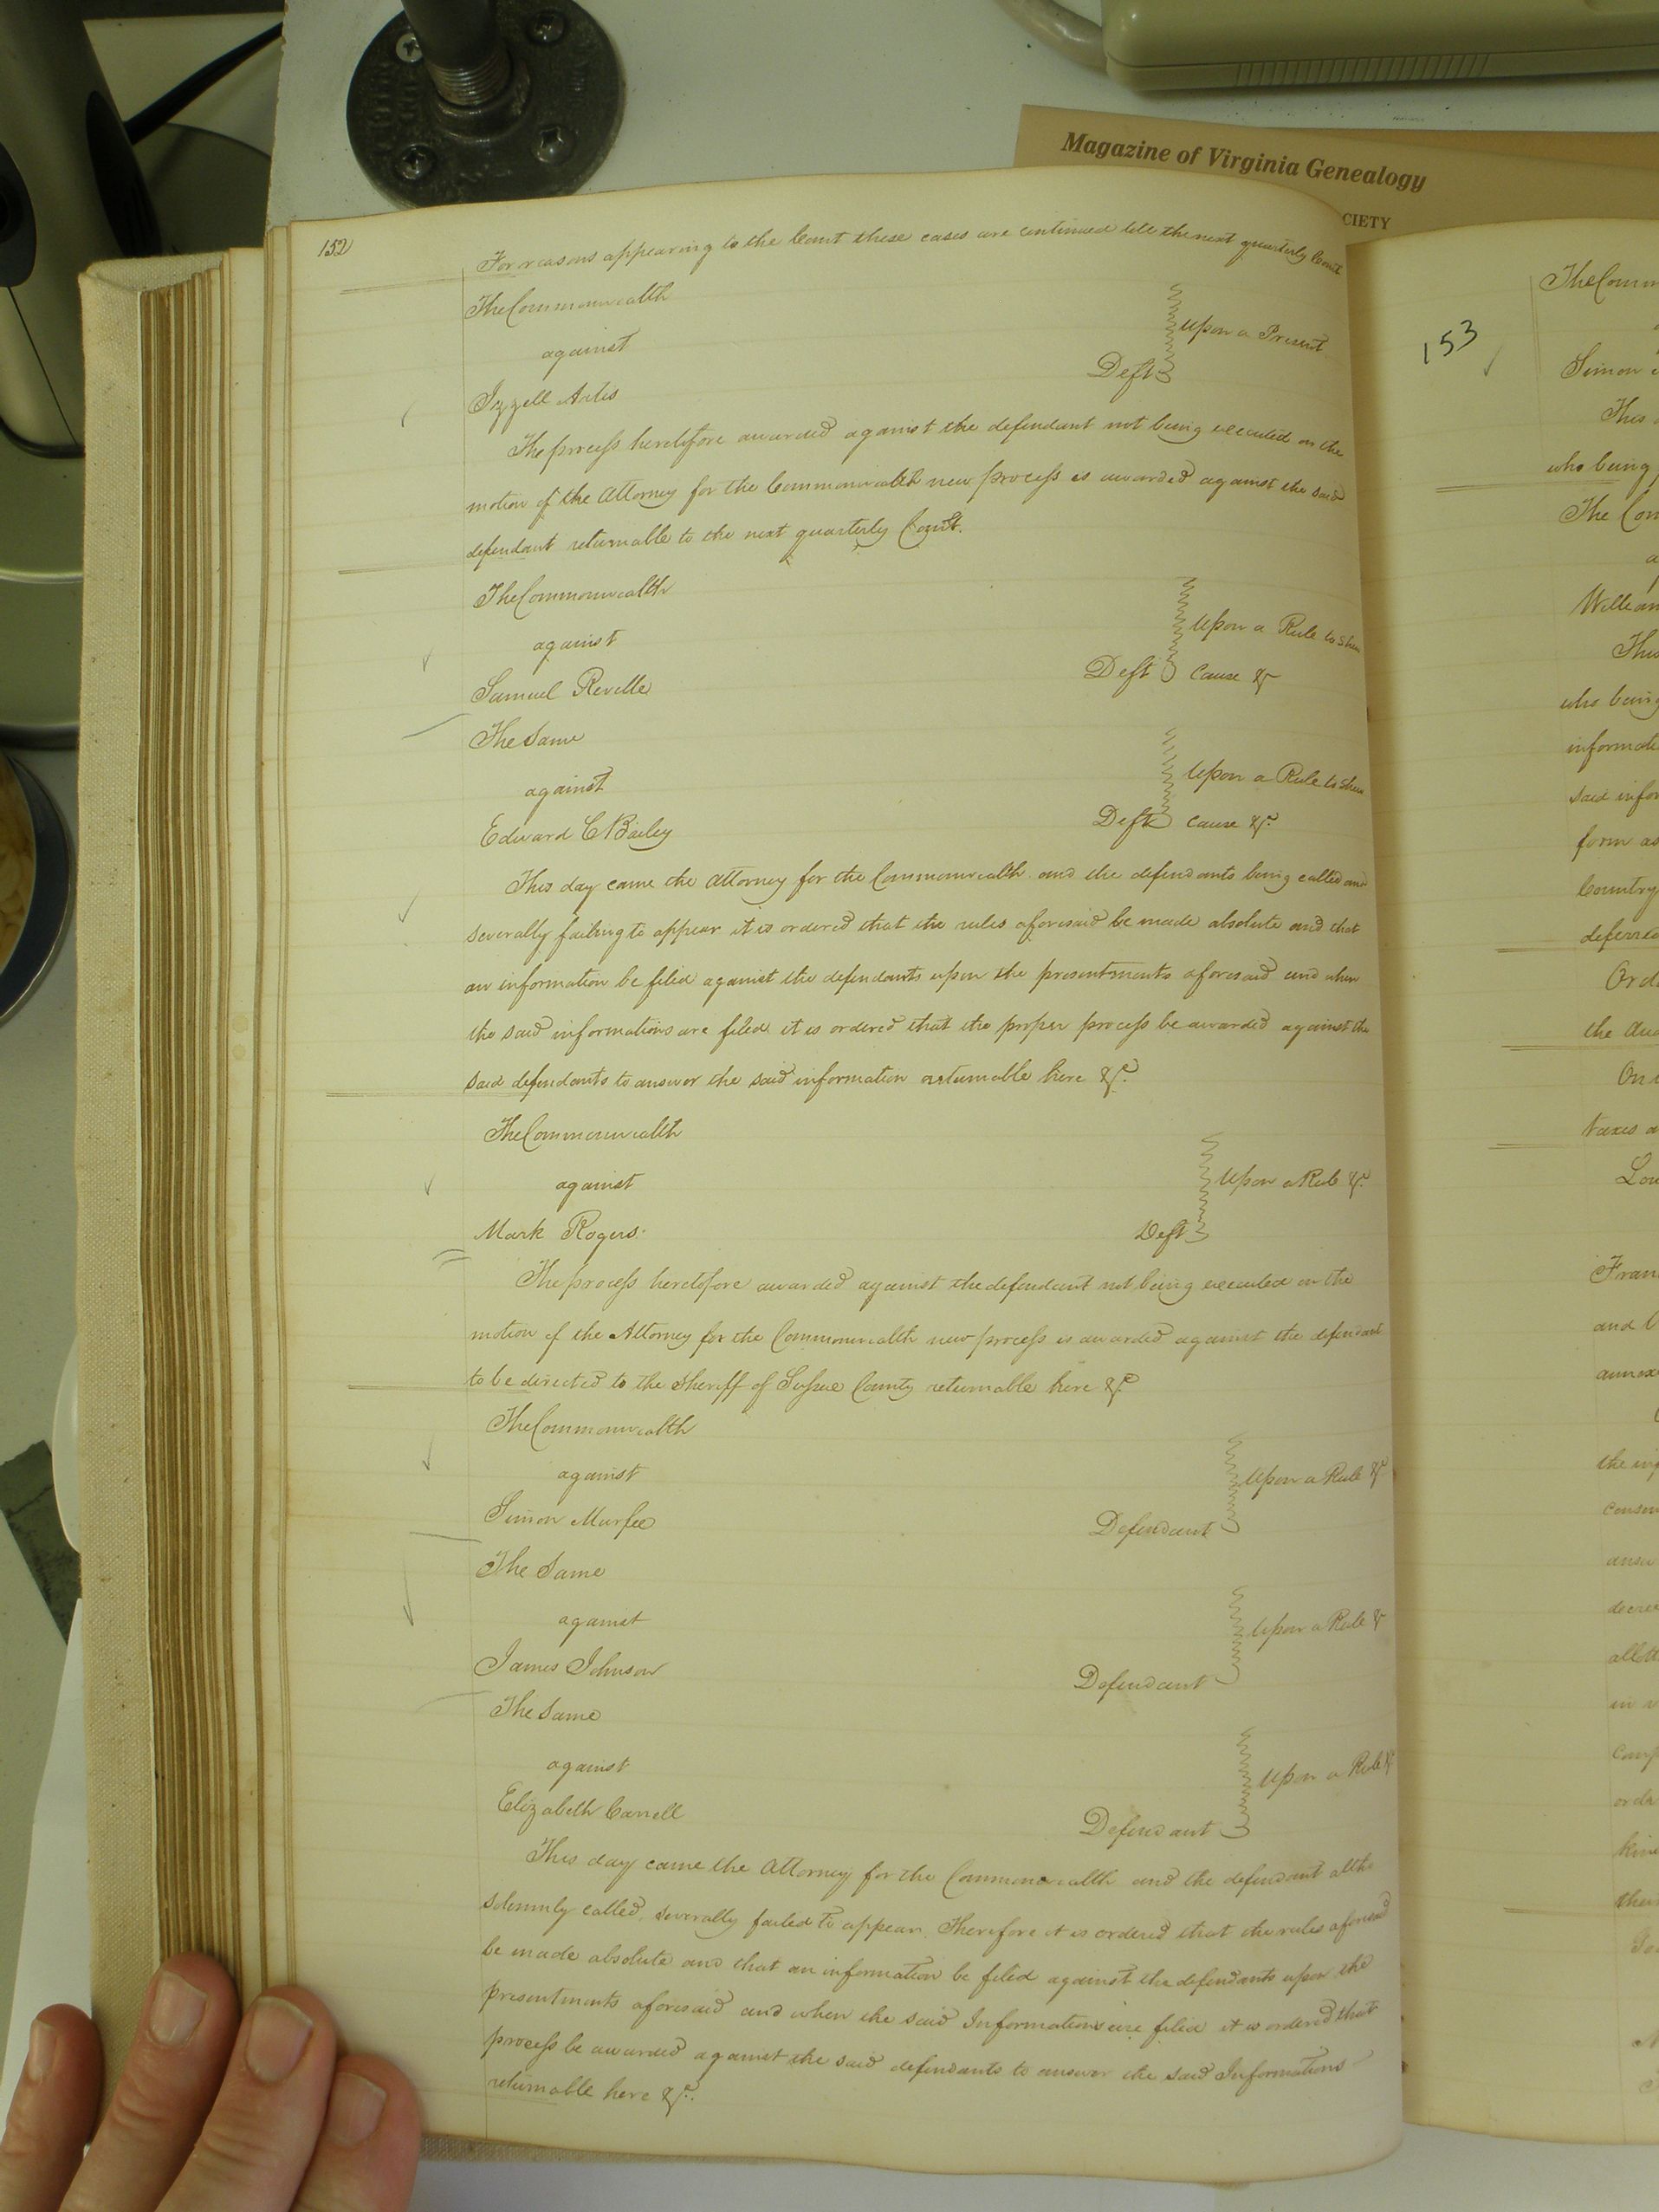 Magazine of Virginia Genealogy
CIETY
152
For reasons appearing to the Court these cases are continued till the next quarterly Court
The Commonwealth
against
Upon a Present
Deft
Izzell Artis
The process heretofore awarded against the defendant not being executed on the
motion of the Attorney for the Commonwealth new process is awarded against the said
defendant returnable to the next quarterly Court.
The Commonwealth
against
Upon a Rule to shew
Samuel Revelle
Deft cause &c
The Same
against
Upon a Rule to shew
Edward C Bailey
Deft cause &c.
This day came the Attorney for the Commonwealth and the defendants being called and
severally failing to appear it is ordered that the rules aforesaid be made absolute and that
an information be filed against the defendants upon the presentments aforesaid and when
the said informations are filed it is ordered that the proper process be awarded against the
said defendants to answer the said information returnable here &c.
The Commonwealth
against
Upon a Rule &c.
Mark Rogers
Deft
The process heretofore awarded against the defendant not being executed on the
motion of the Attorney for the Commonwealth new process is awarded against the defendant
to be directed to the Sheriff of Sussex County returnable here &c
The Commonwealth
against
Upon a Rule &c
Simon Murfee
Defendant
The Same
against
Upon a Rule &c
James Johnson
Defendant
The Same
against
Upon a Rule &c
Elizabeth Carrell
Defendant
This day came the Attorney for the Commonwealth and the defendant altho
solemnly called, severally failed to appear. Therefore it is ordered that the rules aforesaid
be made absolute and that an information be filed against the defendants upon the
presentments aforesaid and when the said Informations are filed it is ordered that
process be awarded against the said defendants to answer the said Informations
returnable here &c.
153
The Comm
Simon
This
who being
The Com
William
This
who being
informati
said infor
form as
Country
deferred
Orde
the Aud
On
taxes a
Lou
Fran
and
annex
the inj
ansu
decree
allott
in
ord
kin
then